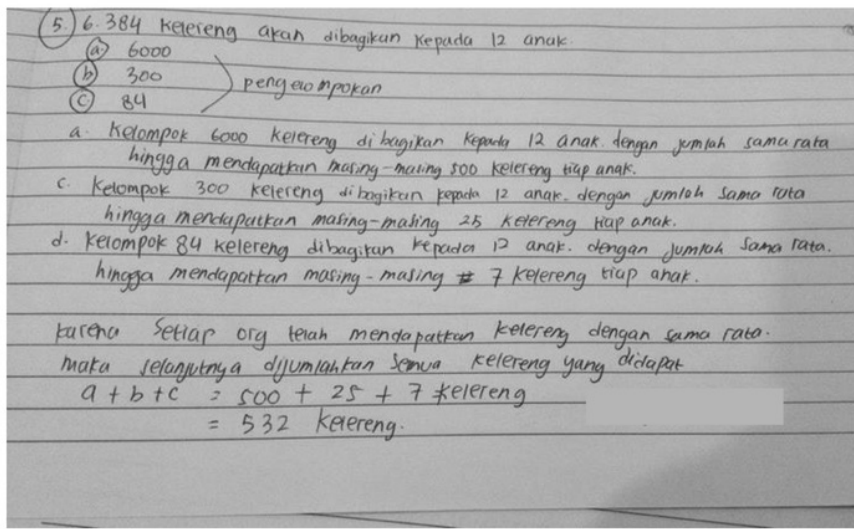 5. 6.384 Kelereng akan dibagikan Kepada 12 anak.
a 6000
b 300
c 84
pengelompokan
a. Kelompok 6000 kelereng dibagikan kepada 12 anak. dengan jumlah sama rata
hingga mendapatkan masing-masing 500 kelereng tiap anak.
c. Kelompok 300 kelereng dibagikan kepada 12 anak. dengan jumlah sama rata
hingga mendapatkan masing-masing 25 kelereng tiap anak.
d. Kelompok 84 kelereng dibagikan kepada 12 anak. dengan jumlah sama rata.
hingga mendapatkan masing-masing 7 kelereng tiap anak.
karena Setiap org telah mendapatkan kelereng dengan sama rata.
maka selanjutnya dijumlahkan semua kelereng yang didapat
a + b + c = 500 + 25 + 7 kelereng
= 532 kelereng.